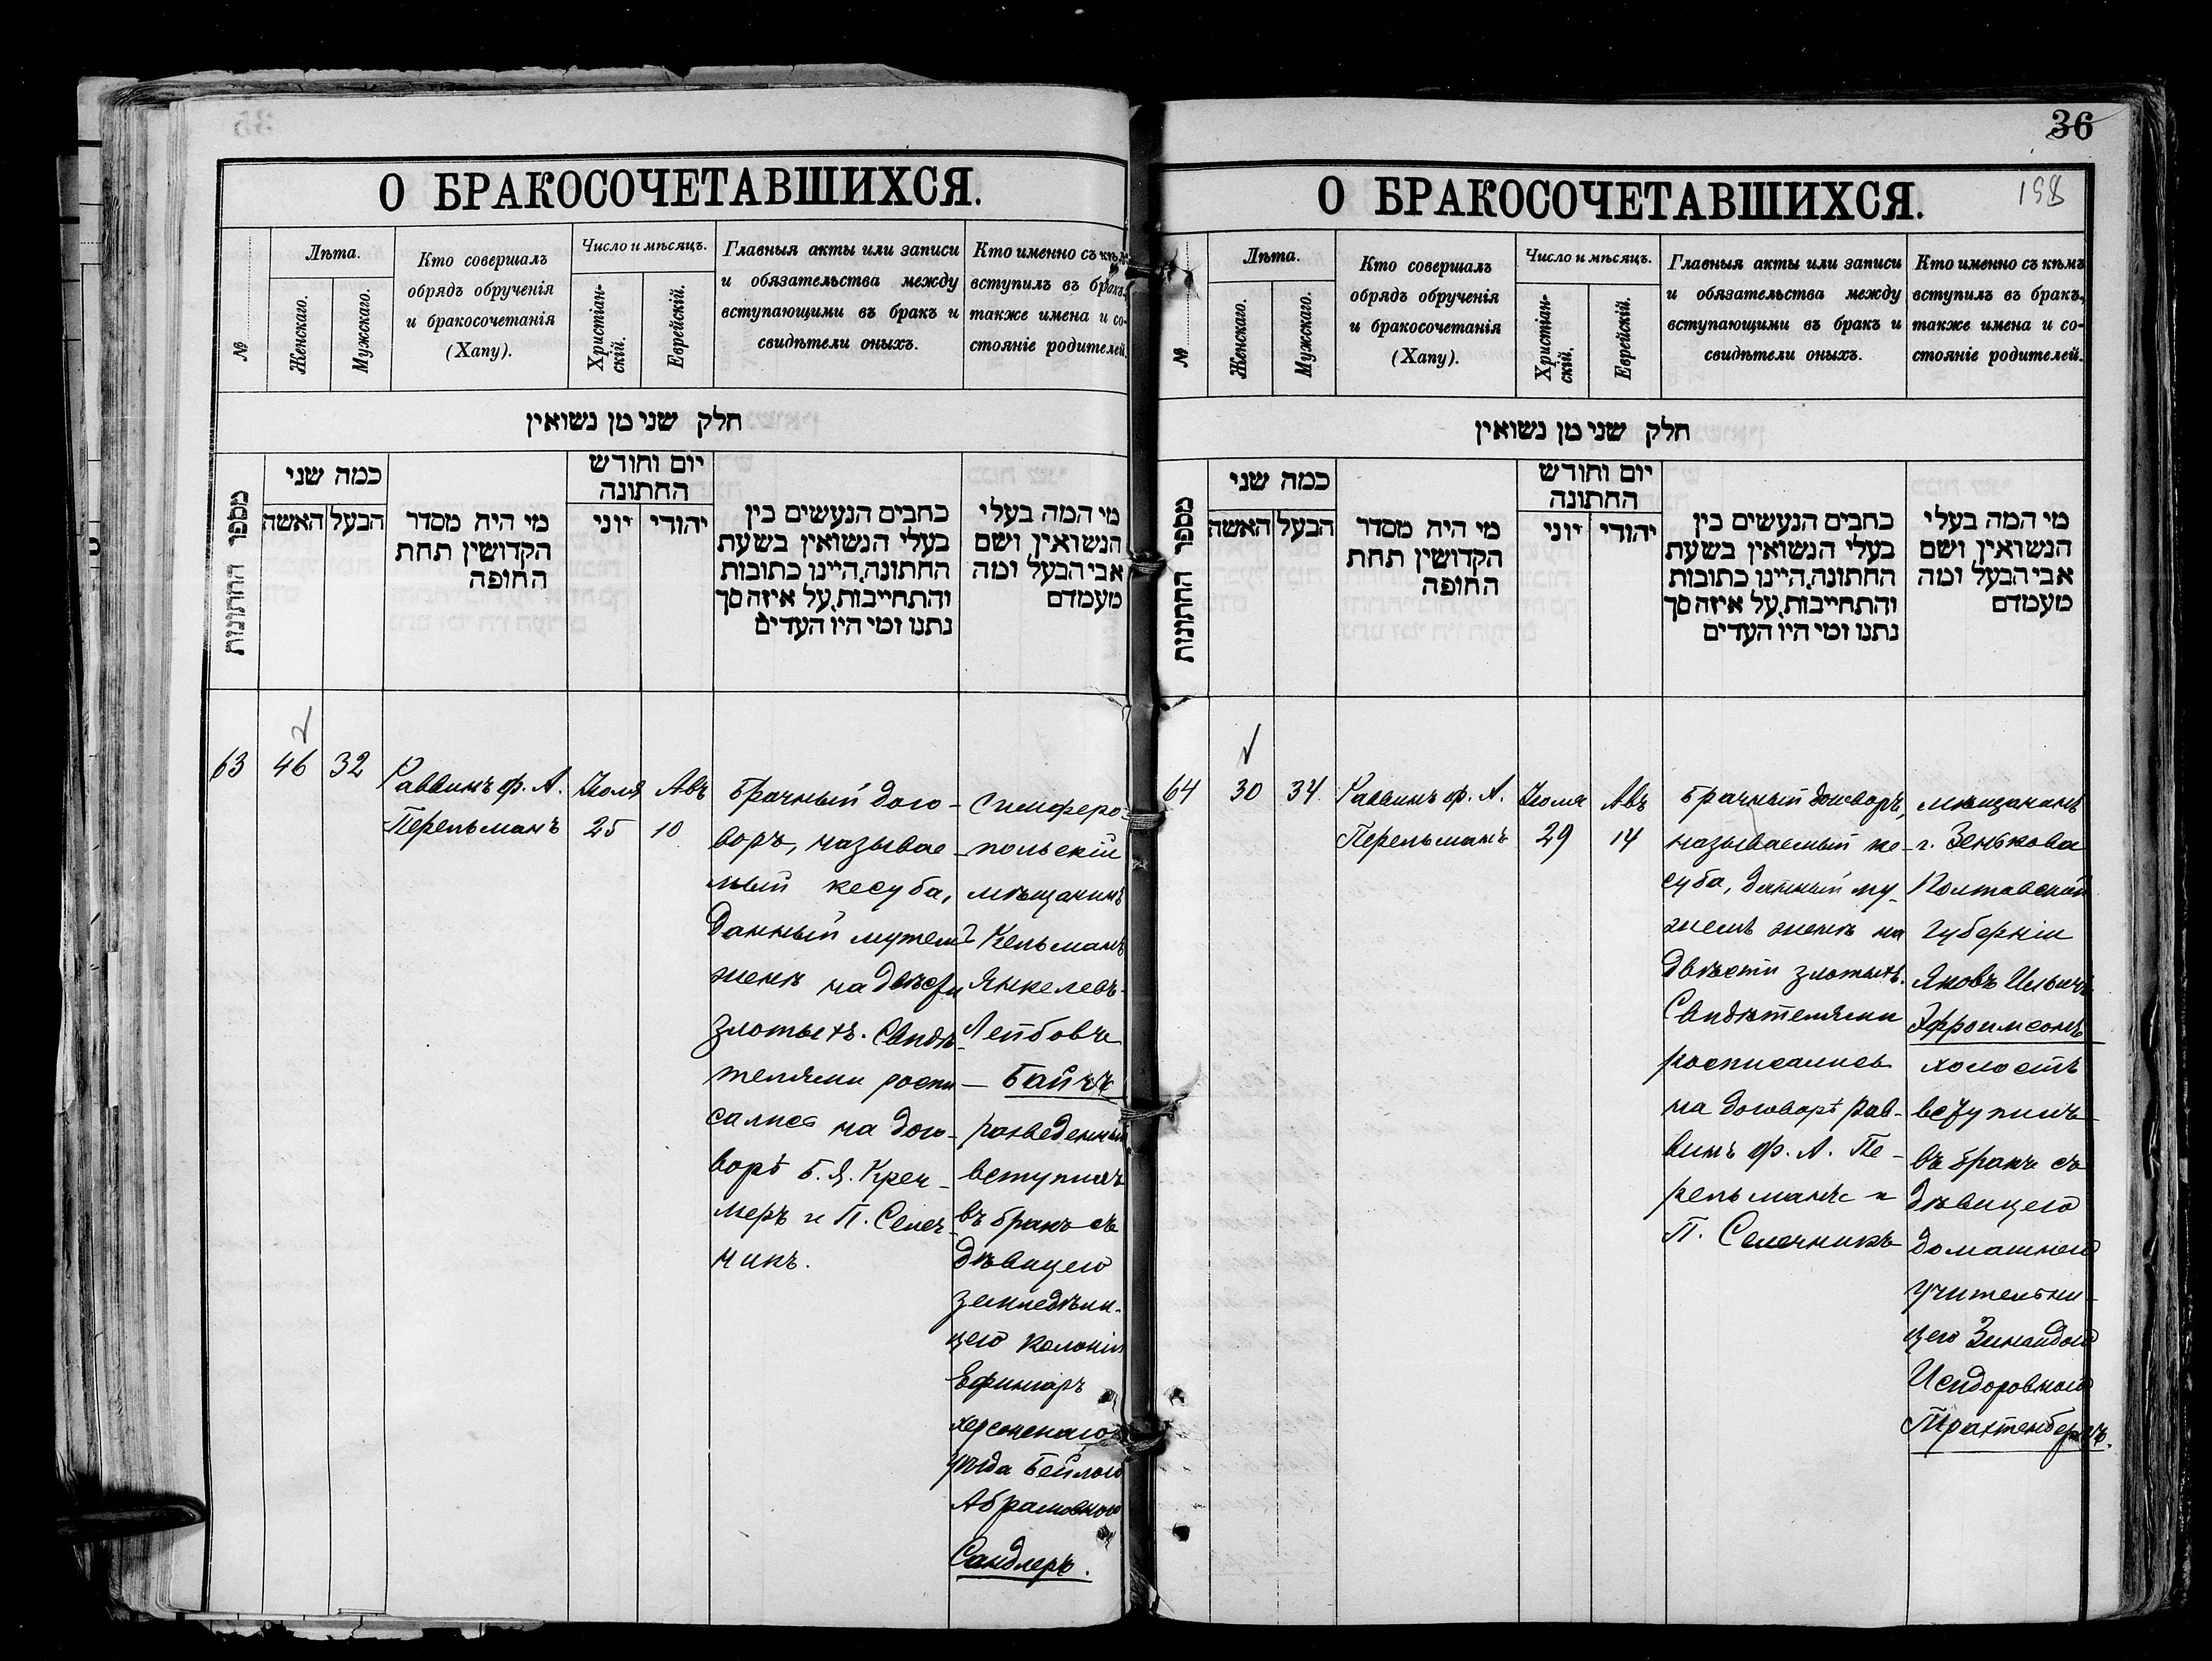 О БРАКОСОЧЕТАВШИХСЯ.
№
Лѣта.
Женскаго.
Мужскаго.
Кто совершалъ
обрядъ обрученія
и бракосочетанія
(Хапу).
Число и мѣсяцъ.
Христіан-
скій.
Еврейскій.
Главныя акты или записи
и обязательства между
вступающими въ бракъ и
свидѣтели оныхъ.
Кто именно съ кѣмъ
вступилъ въ бракъ,
также имена и со-
стояніе родителей.
חלק שני מן נשואין
מספר החתונות
כמה שני
האשה
הבעל
מי היה מסדר
הקדושין תחת
החופה
יום וחודש
החתונה
יוני
יהודי
כחבים הנעשים בין
בעלי הנשואין בשעת
החתונה,היינו כתובות
והתחייבות,על איזה סך
נתנו ומי היו העדים
מי המה בעלי
הנשואין ושם
אבי הבעל ומה
מעמדם
63
46
32
Раввинъ ф. А.
Перельманъ
Июля
25
Авъ
10
Брачный дого-
воръ, называе-
мый кесуба,
данный мужемъ
женѣ на двѣсти
злотыхъ. Свидѣ-
телями роспи-
сались на дого-
ворѣ Б. Я. Креч-
меръ и П. Слеч-
никъ.
Симферо-
польскій
мѣщанинъ
Кельманъ
Янкелевъ-
Лейбовъ
разведенный
вступилъ
въ бракъ съ
дѣвицею
земледѣли-
цею колоніи
Ефингаръ
херсонскаго
уѣзда Бейлою
Абрамовною
Сандлеръ.
36
198
О БРАКОСОЧЕТАВШИХСЯ.
№
Лѣта.
Женскаго.
Мужскаго.
Кто совершалъ
обрядъ обрученія
и бракосочетанія
(Хапу).
Число и мѣсяцъ.
Христіан-
скій.
Еврейскій.
Главныя акты или записи
и обязательства между
вступающими въ бракъ и
свидѣтели оныхъ.
Кто именно съ кѣмъ
вступилъ въ бракъ,
также имена и со-
стояніе родителей.
חלק שני מן נשואין
מספר החתונות
כמה שני
האשה
הבעל
מי היה מסדר
הקדושין תחת
החופה
יום וחודש
החתונה
יוני
יהודי
כחבים הנעשים בין
בעלי הנשואין בשעת
החתונה,היינו כתובות
והתחייבות,על איזה סך
נתנו ומי היו העדים
מי המה בעלי
הנשואין ושם
אבי הבעל ומה
מעמדם
64
30
34.
Раввинъ ф. А.
Перельманъ
Июля
29
Авъ
14
Брачный договоръ,
называемый ке-
суба, данный му-
жемъ женѣ на
двѣсти злотыхъ.
Свидѣтелями
росписались
на договорѣ Рав-
винъ ф. А. Пе-
рельманъ и
П. Слечникъ
мѣщанинъ
г. Зенькова
Полтавской
губерніи
Яковъ Ильичъ
Эфроимсонъ
холостъ
вступилъ
въ бракъ съ
дѣвицею
домашнею
учительни-
цею Зинаидою
Исидоровною
Трахтенбергъ.